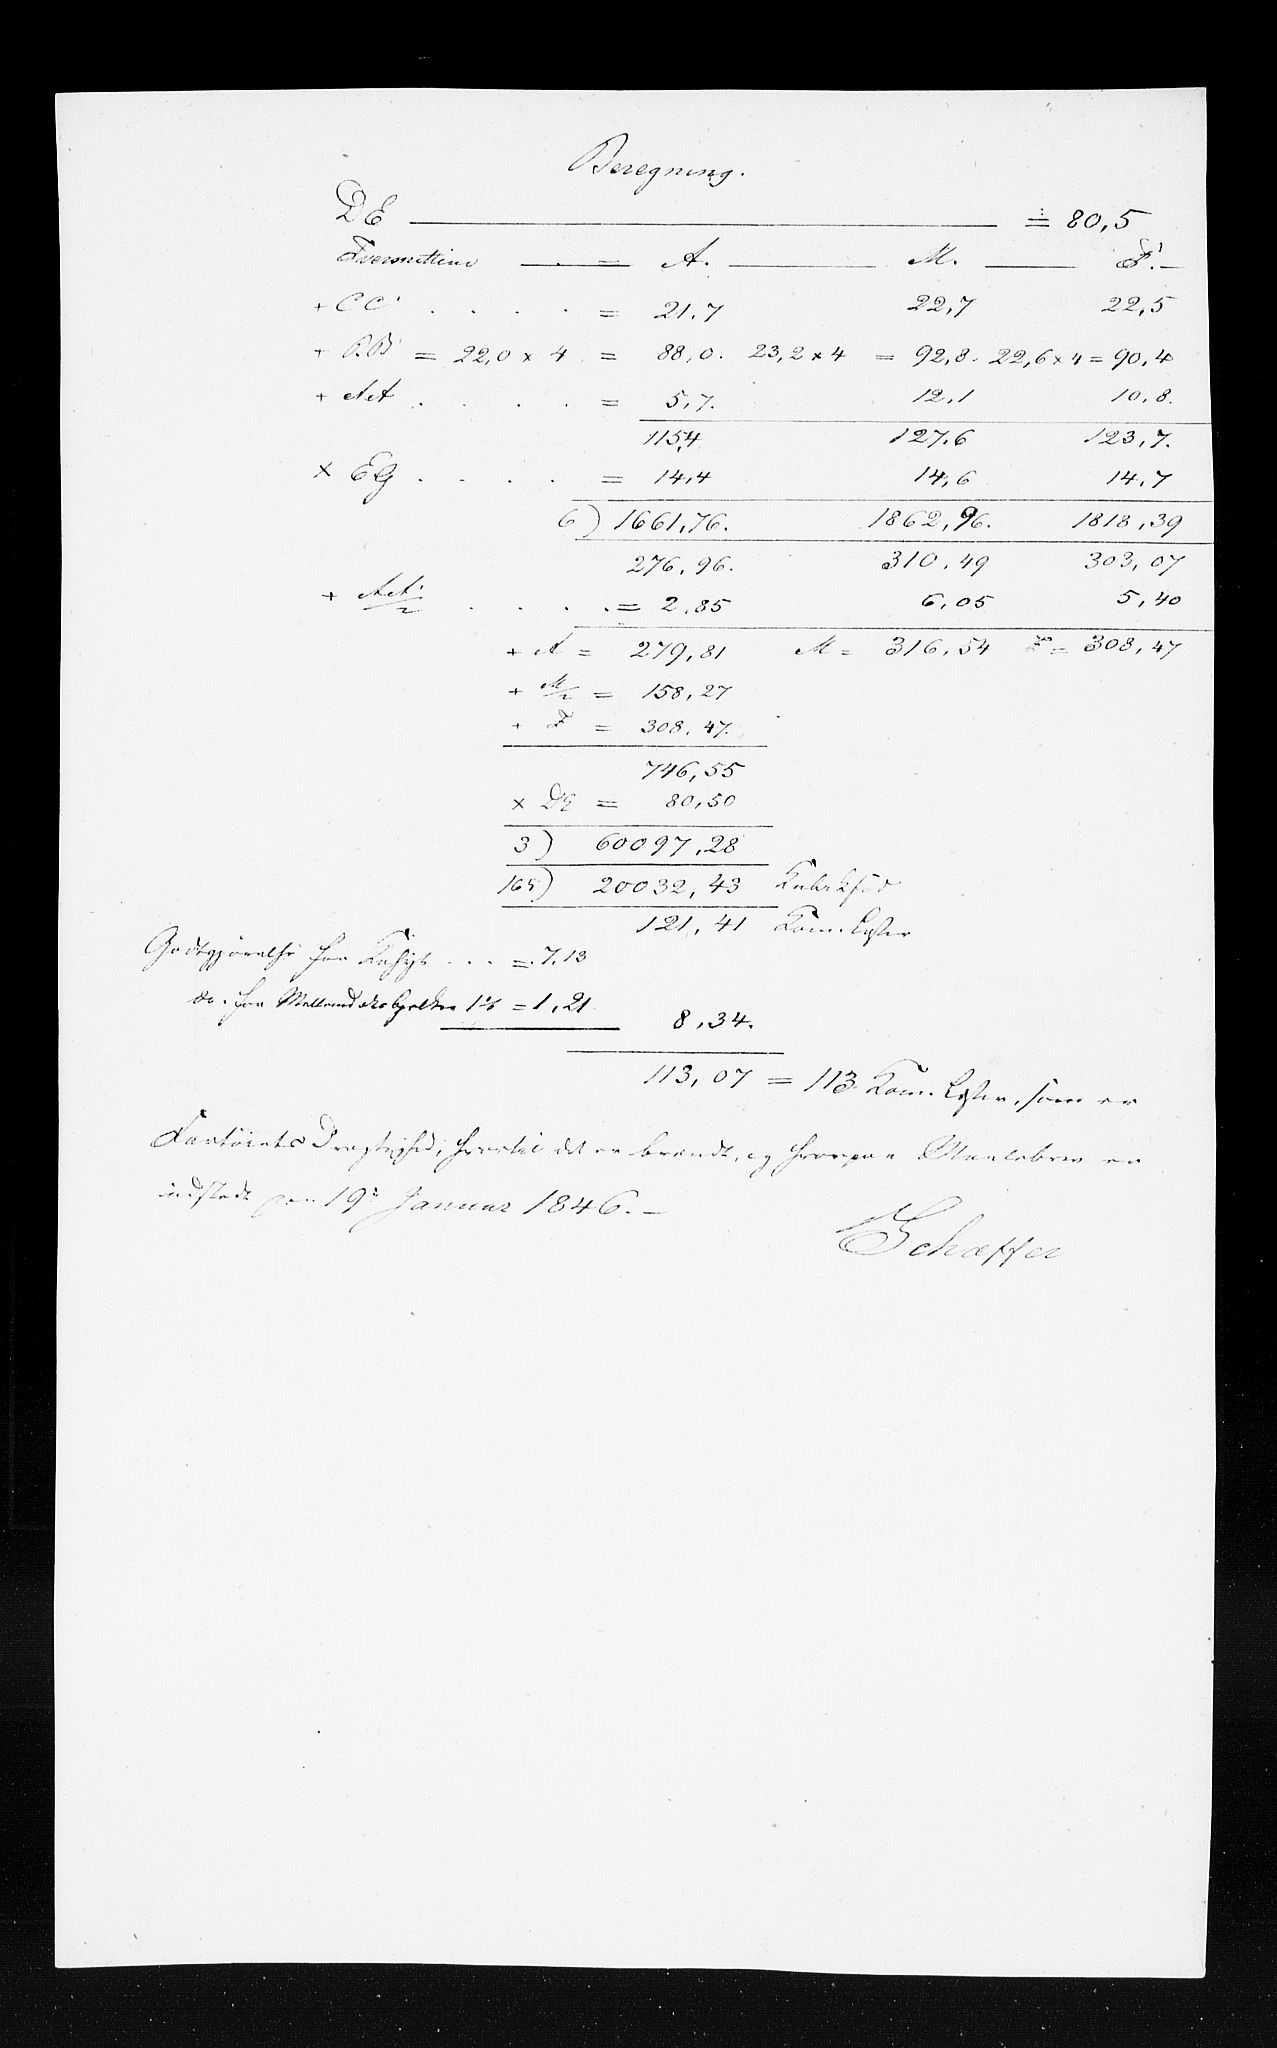 Beregning.
DE = 80,5
Tversnittene = A. M. F.
+ CC' . . . . = 21.7 22,7 22,5
+ BB' = 22,0 × 4 = 88,0. 23,2 × 4 = 92,8. 22,6 × 4 = 90,4
+ AA' . . . . = 5,7. 12,1 10,8.
115,4 127.6 123,7.
× EG . . . . = 14,4 14,6 14,7
6) 1661,76. 1862,96. 1818,39
276,96. 310,49 303,07
+ AA'/2 . . . . = 2.85 6,05 5,40
+ A = 279,81 M = 316,54 F = 308,47
+ M/2 = 158,27
+ F = 308,47.
746,55
× DE = 80,50
3) 60097,28
165) 20032,43 Kubikfod
121,41 Kom. Læster
Godtgjørelse for Kahyt . . . = 7.13
do. for 1% = 1,21
8,34.
113,07 = 113 Kom. Læster, som er
Fartøiets Drægtighed, hvortil det er brændt, og hvorpaa Maalebrev er
udstedt den 19de Januar 1846.
Schæffer